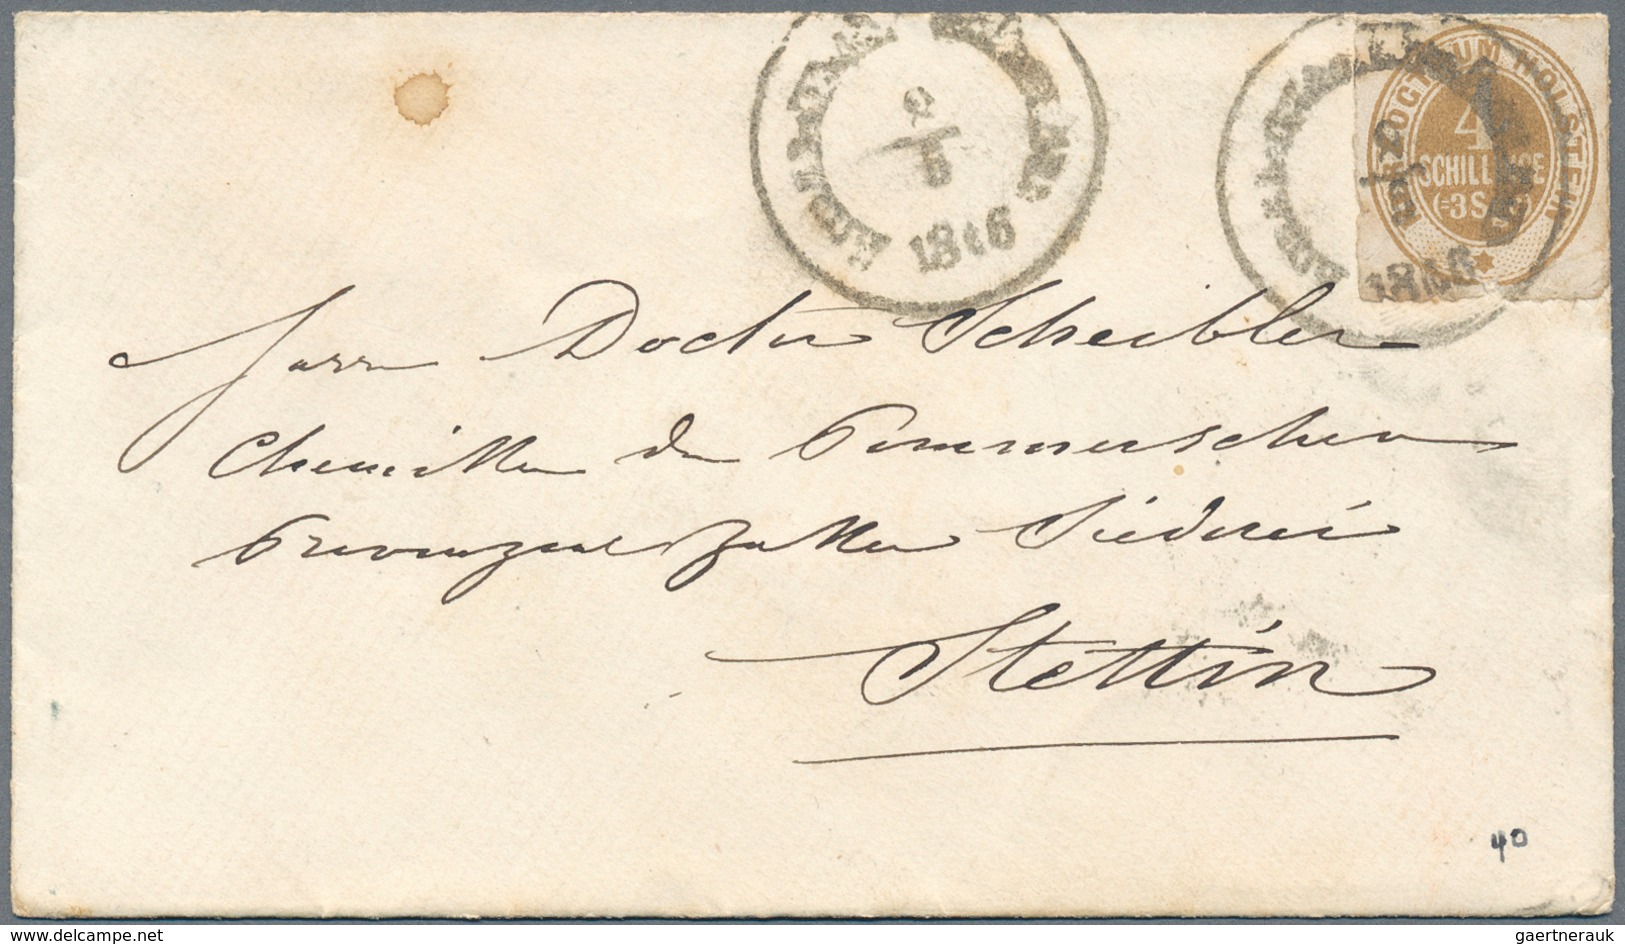 2/5
1866
HERZOGTHUM HOLSTEIN
4
SCHILLINGE
Herrn Doctor Scheibler
Chemiker der Pommerschen
Provinzial Zucker Siederei
Stettin
40
www.delcampe.net
gaertnerauk